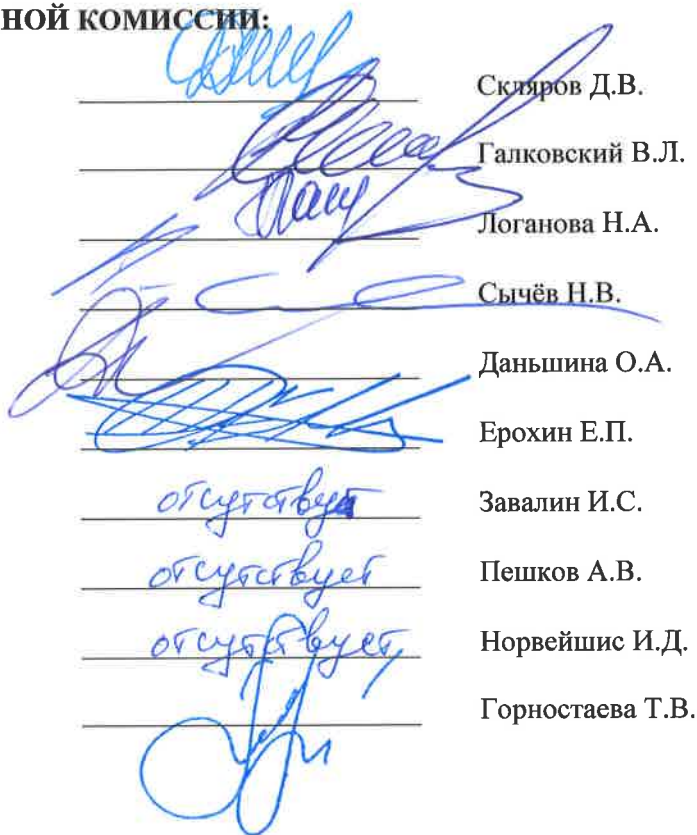 НОЙ КОМИССИИ:
Скляров Д.В.
Галковский В.Л.
Логанова Н.А.
Сычёв Н.В.
Даньшина О.А.
Ерохин Е.П.
отсутствует Завалин И.С.
отсутствует Пешков А.В.
отсутствует Норвейшис И.Д.
Горностаева Т.В.